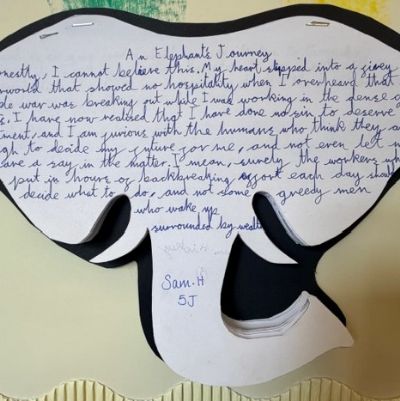 An Elephants Journey
onestly, I cannot believe this. My heart skipped into a
rworld that showed no hospitality when I overheard that
de war was breaking out while I was working in the dense
s. I have now realised that I have done no sin to deserve
tment, and I am furious with the humans who think they a
gh to decide my future for me, and not even let m
ave a say in the matter. I mean, surely the workers wh
put in hours of backbreaking effort each day shou
decide what to do, and not some greedy men
who wake up
surrounded by wealt
Sam.H
5J